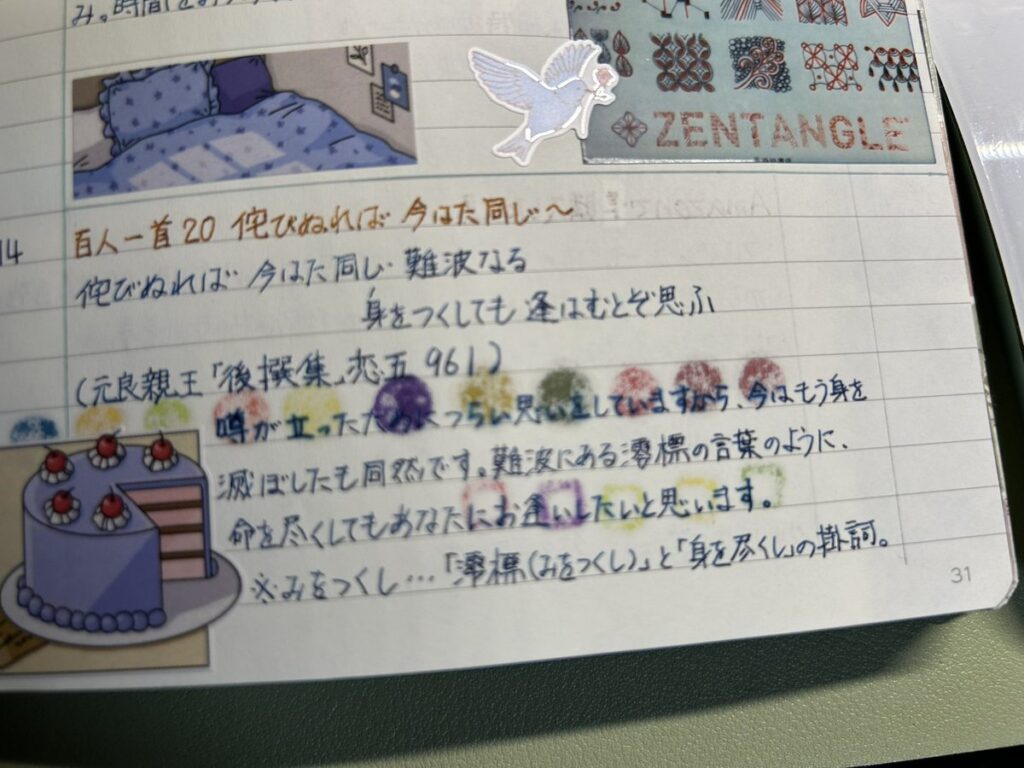 み。時間を
ZENTANGLE
14
百人一首20 侘びぬれば 今はた同じ〜
侘びぬれば 今はた同じ 難波なる
身をつくしても 逢はむとぞ思ふ
(元良親王「後撰集」恋五 961)
噂が立ったためにつらい思いをしていますから、今はもう身を
滅ぼしたも同然です。難波にある澪標の言葉のように、
命を尽くしてもあなたにお逢いしたいと思います。
※みをつくし…「澪標(みをつくし)」と「身を尽くし」の掛詞。
31